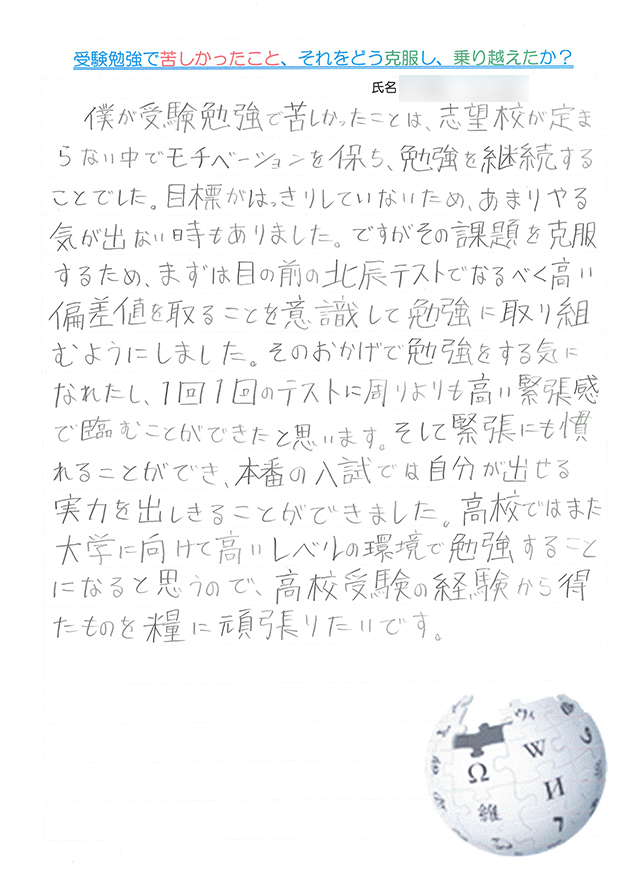 受験勉強で苦しかったこと、それをどう克服し、乗り越えたか？
氏名
僕が受験勉強で苦しかったことは、志望校が定ま
らない中でモチベーションを保ち、勉強を継続する
ことでした。目標がはっきりしていないため、あまりやる
気が出ない時もありました。ですがその課題を克服
するため、まずは目の前の北辰テストでなるべく高い
偏差値を取ることを意識して勉強に取り組
むようにしました。そのおかげで勉強をする気に
なれたし、1回1回のテストに周りよりも高い緊張感
で臨むことができたと思います。そして緊張にも慣
れることができ、本番の入試では自分が出せる
実力を出しきることができました。高校ではまた
大学に向けて高いレベルの環境で勉強すること
になると思うので、高校受験の経験から得
たものを糧に頑張りたいです。
Ω
W
И
維